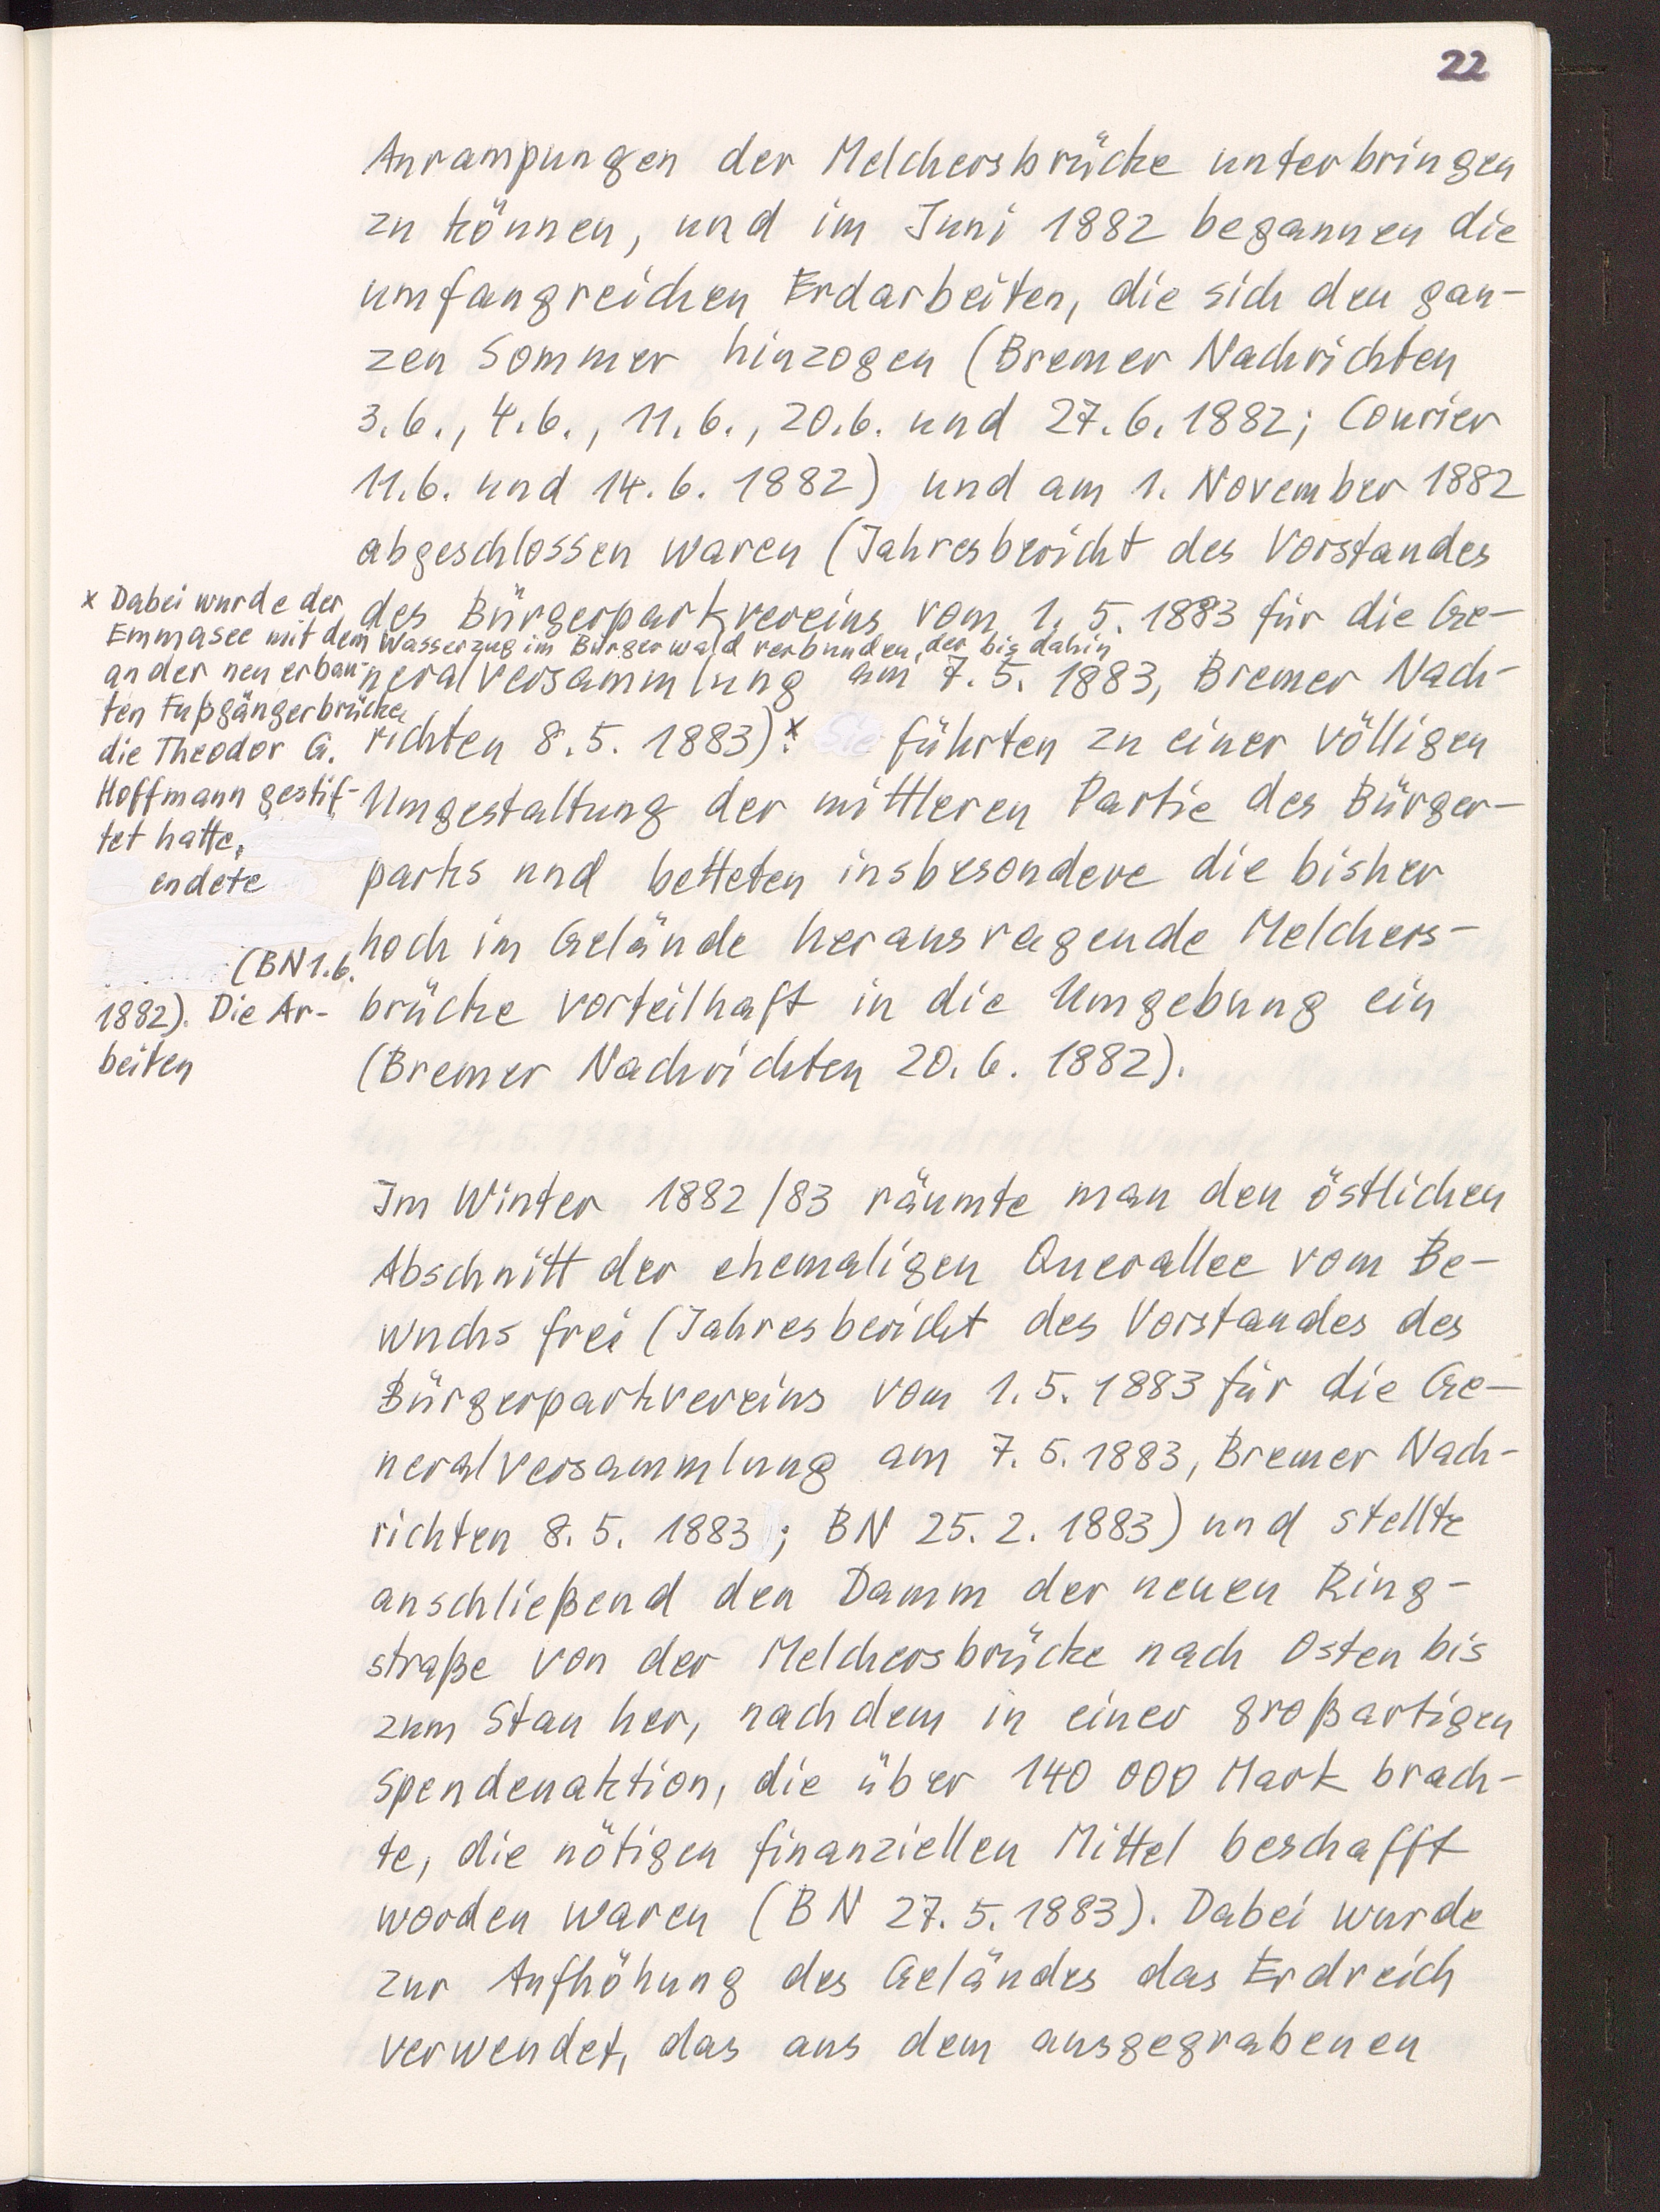 22
Anrampungen der Melchersbrücke unterbringen
zu können, und im Juni 1882 begannen die
umfangreichen Erdarbeiten, die sich den gan-
zen Sommer hinzogen (Bremer Nachrichten
3.6., 4.6., 11.6., 20.6. und 27.6.1882; Courier
11.6. und 14.6. 1882) und am 1. November 1882
abgeschlossen waren (Jahresbericht des Vorstandes
des Bürgerparkvereins vom 1. 5. 1883 für die Ge-
neralversammlung am 7.5. 1883, Bremer Nach-
richten 8.5. 1883).x Sie führten zu einer völligen
Umgestaltung der mittleren Partie des Bürger-
parks und betteten insbesondere die bisher
hoch im Gelände herausragende Melchers-
brücke vorteilhaft in die Umgebung ein
(Bremer Nachrichten 20.6. 1882).
x Dabei wurde der
Emmasee mit dem Wasserzug im Bürgerwald verbunden, der bis dahin
an der neu erbau-
ten Fußgängerbrücke,
die Theodor G.
Hoffmann gestif-
tet hatte,
endete
(BN 1.6.
1882). Die Ar-
beiten
Im Winter 1882/83 räumte man den östlichen
Abschnitt der ehemaligen Querallee vom Be-
wuchs frei (Jahresbericht des Vorstandes des
Bürgerparkvereins vom 1.5.1883 für die Ge-
neralversammlung am 7.5.1883, Bremer Nach-
richten 8.5. 1883; BN 25.2.1883) und stellte
anschließend den Damm der neuen Ring-
straße von der Melchersbrücke nach Osten bis
zum Stau her, nachdem in einer großartigen
Spendenaktion, die über 140 000 Mark brach-
te, die nötigen finanziellen Mittel beschafft
worden waren (BN 27.5.1883). Dabei wurde
zur Aufhöhung des Geländes das Erdreich
verwendet, das aus dem ausgegrabenen